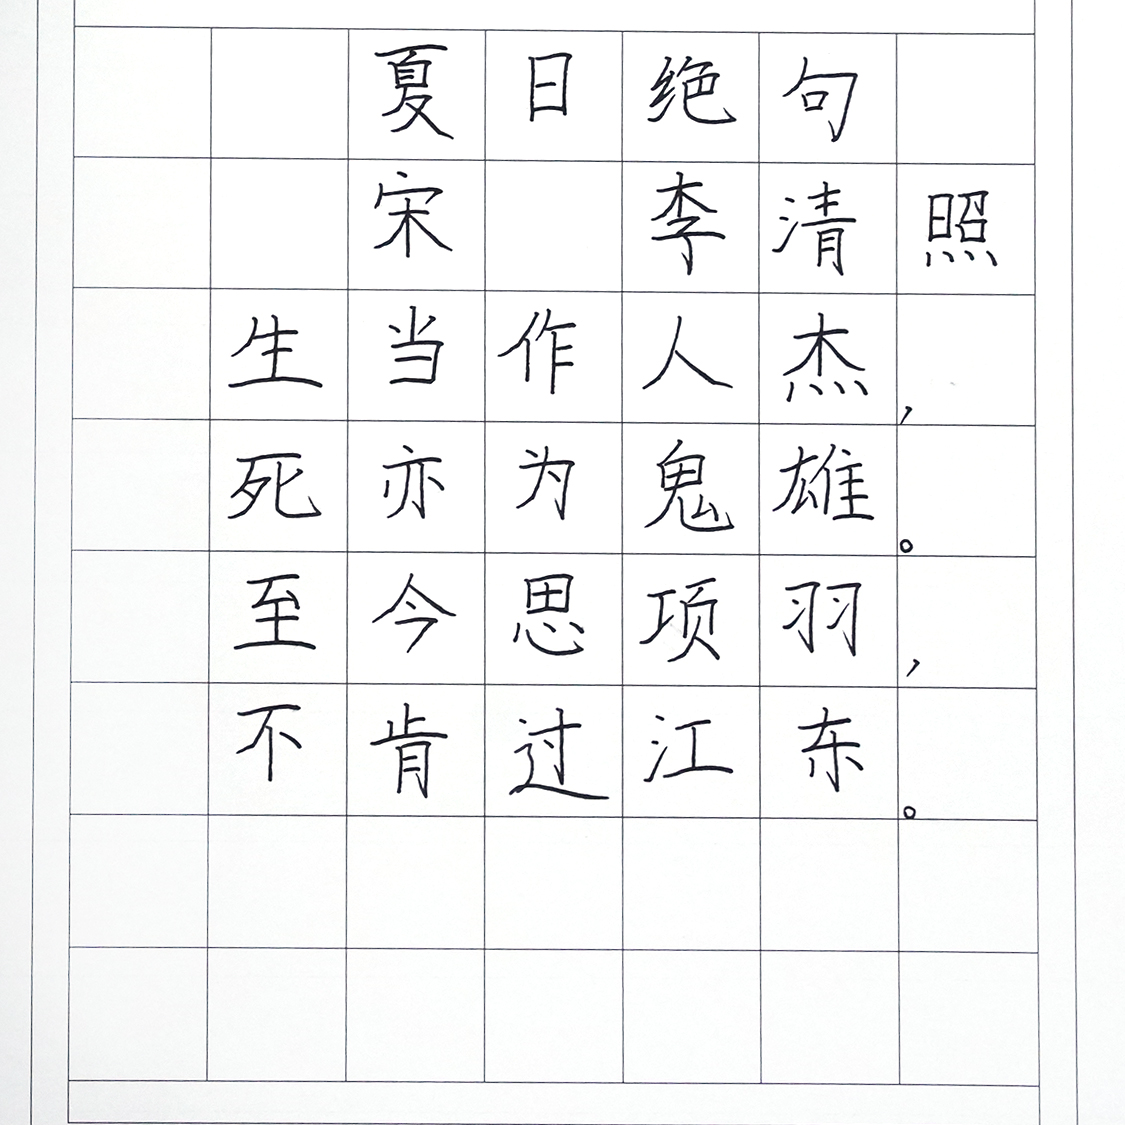 夏日绝句
宋 李清照
生当作人杰,
死亦为鬼雄。
至今思项羽,
不肯过江东。